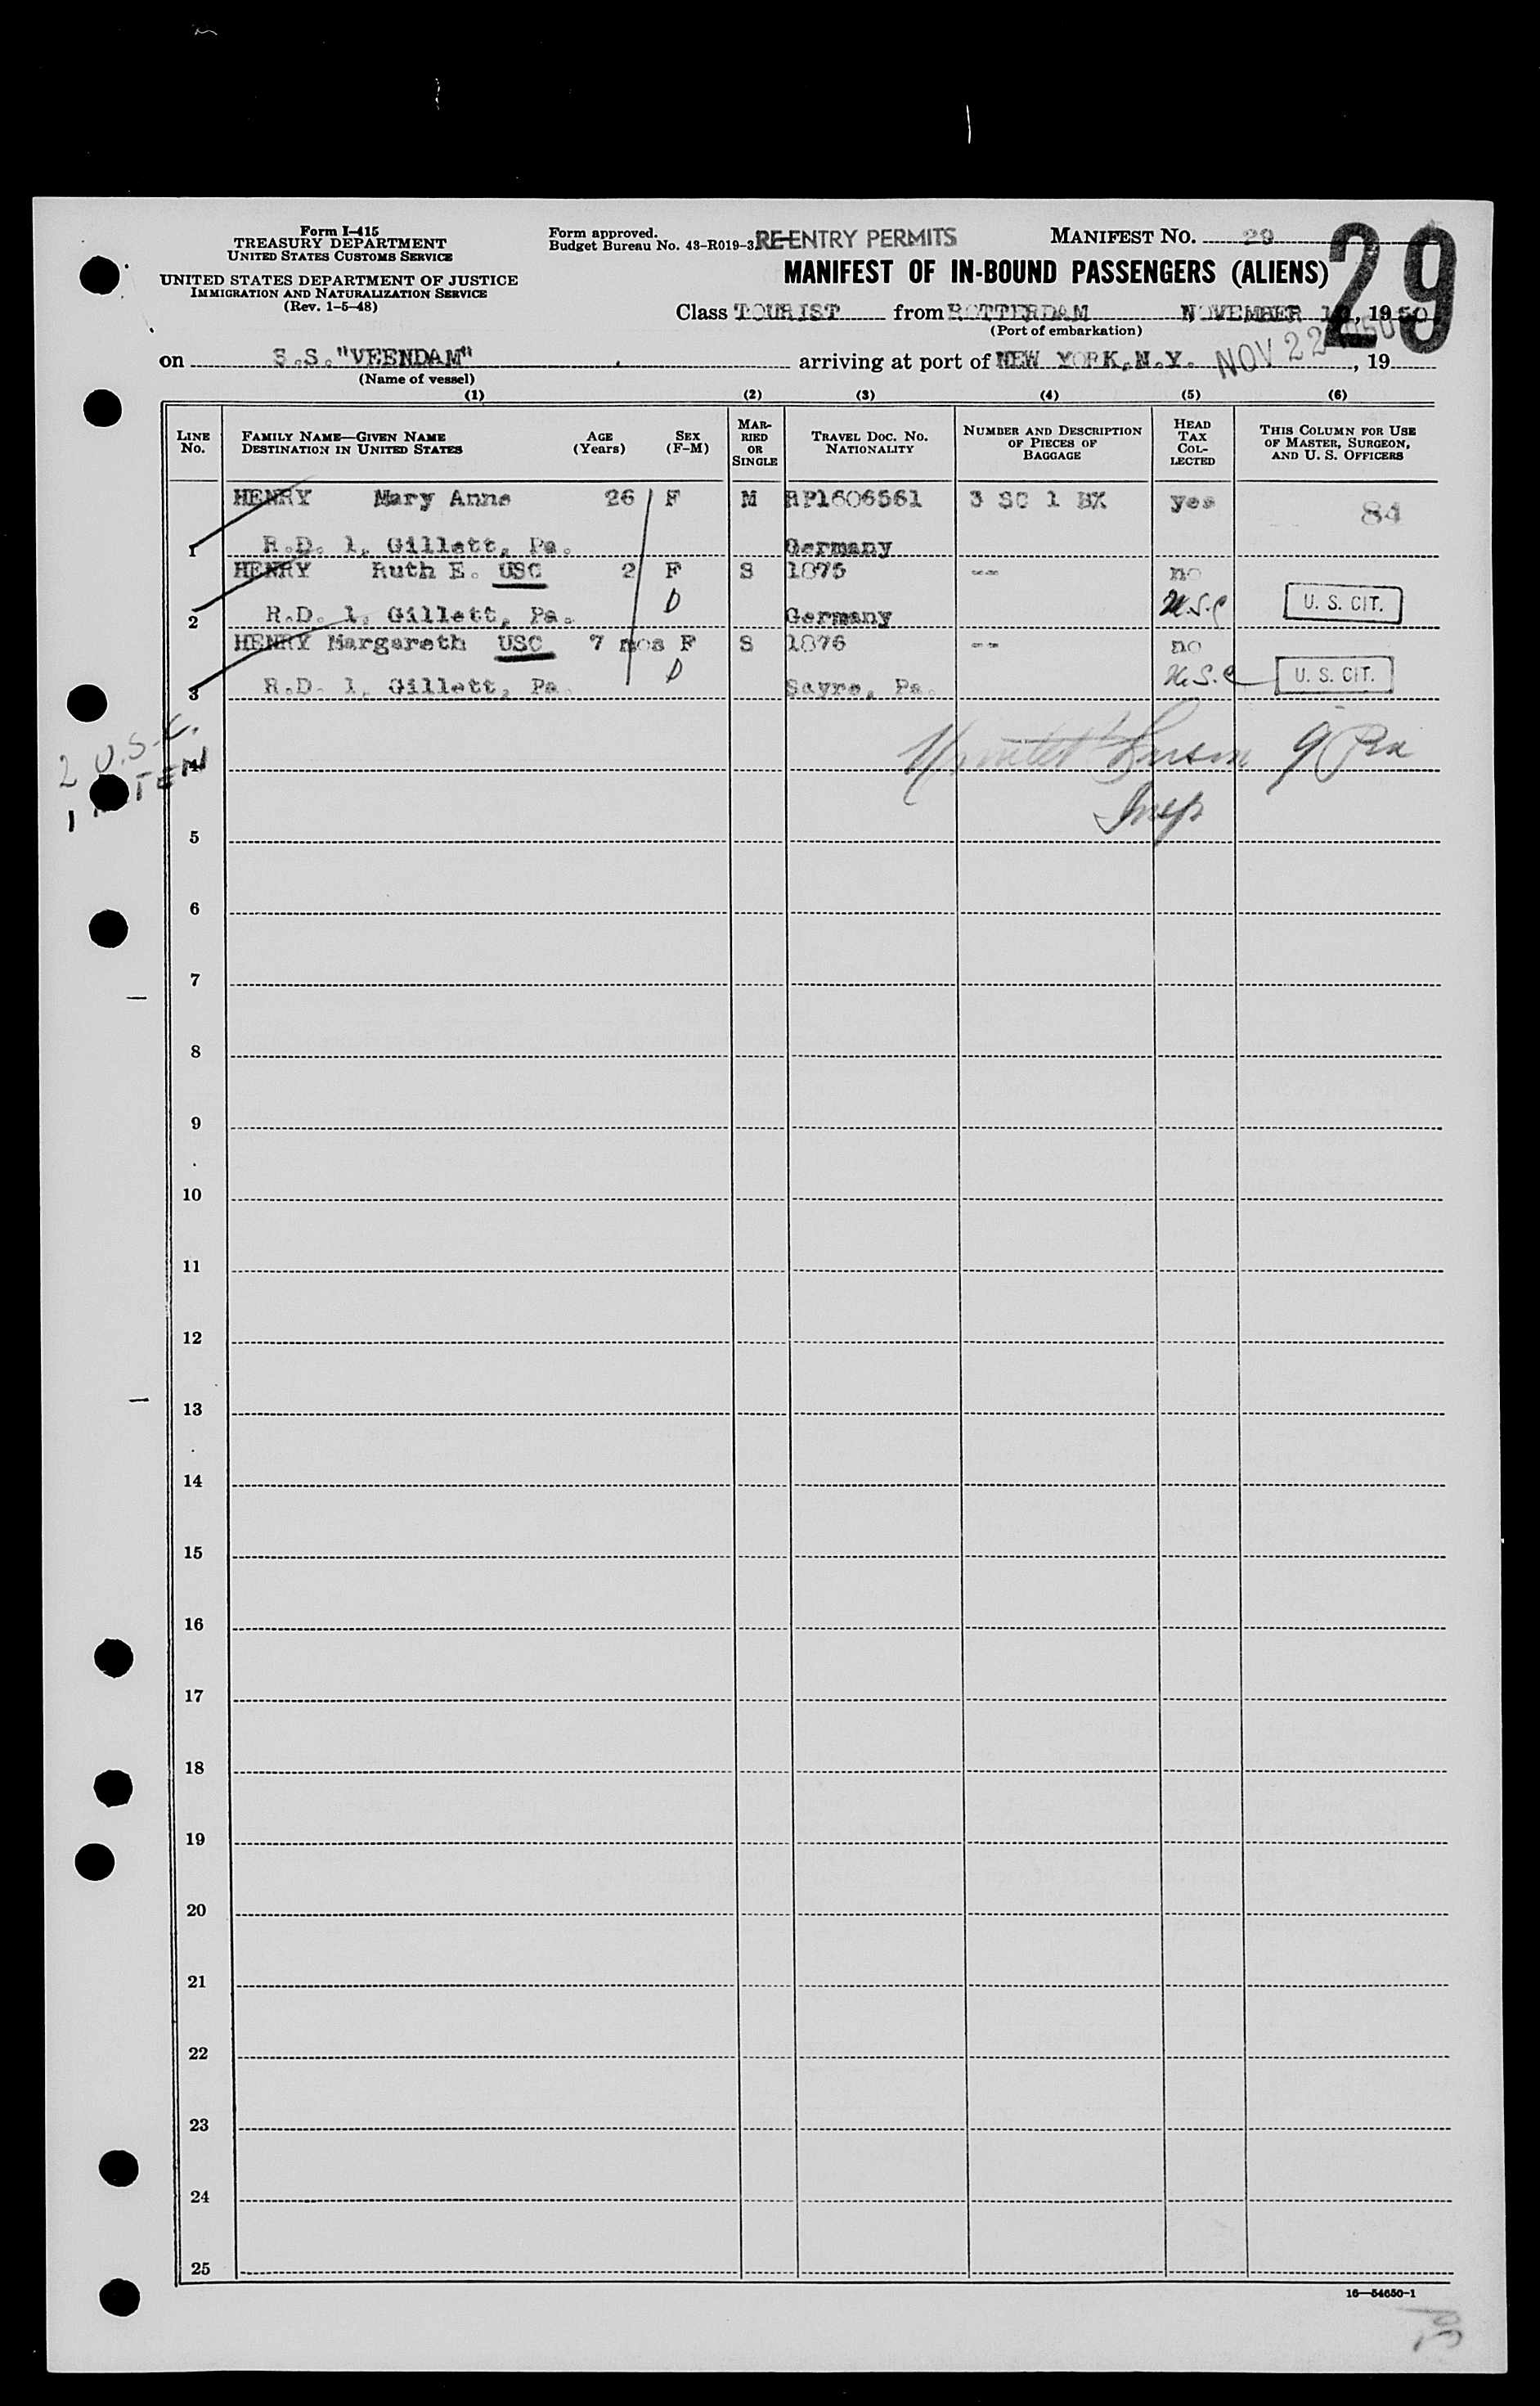 Form I-415
TREASURY DEPARTMENT
UNITED STATES CUSTOMS SERVICE
UNITED STATES DEPARTMENT OF JUSTICE
IMMIGRATION AND NATURALIZATION SERVICE
(Rev. 1-5-48)
Form approved.
Budget Bureau No. 43-R019-3.
RE-ENTRY PERMITS
MANIFEST NO. 29
29
MANIFEST OF IN-BOUND PASSENGERS (ALIENS)
Class TOURIST from ROTTERDAM NOVEMBER , 1950
(Port of embarkation)
on S.S."VEENDAM" arriving at port of NEW YORK,N.Y. NOV 22 1950, 19
(Name of vessel)
(1) (2) (3) (4) (5) (6)
LINE No. FAMILY NAME—GIVEN NAME DESTINATION IN UNITED STATES AGE (Years) SEX (F-M) MARRIED OR SINGLE TRAVEL DOC. NO. NATIONALITY NUMBER AND DESCRIPTION OF PIECES OF BAGGAGE HEAD TAX COLLECTED THIS COLUMN FOR USE OF MASTER, SURGEON, AND U. S. OFFICERS
HENRY Mary Anne 26 F M RP1606561 3 SC 1 BX yes 84
1 R.D. 1, Gillett, Pa. Germany
HENRY Ruth E. USC 2 F S 1875 -- no
2 R.D. 1, Gillett, Pa. D Germany U.S.C U. S. CIT.
HENRY Margareth USC 7 mos F S 1876 -- no
3 R.D. 1, Gillett, Pa. D Sayre, Pa. U.S.C U. S. CIT.
2 U.S.C.
4
1
Insp
5
6
7
8
9
10
11
12
13
14
15
16
17
18
19
20
21
22
23
24
25
16—54650-1